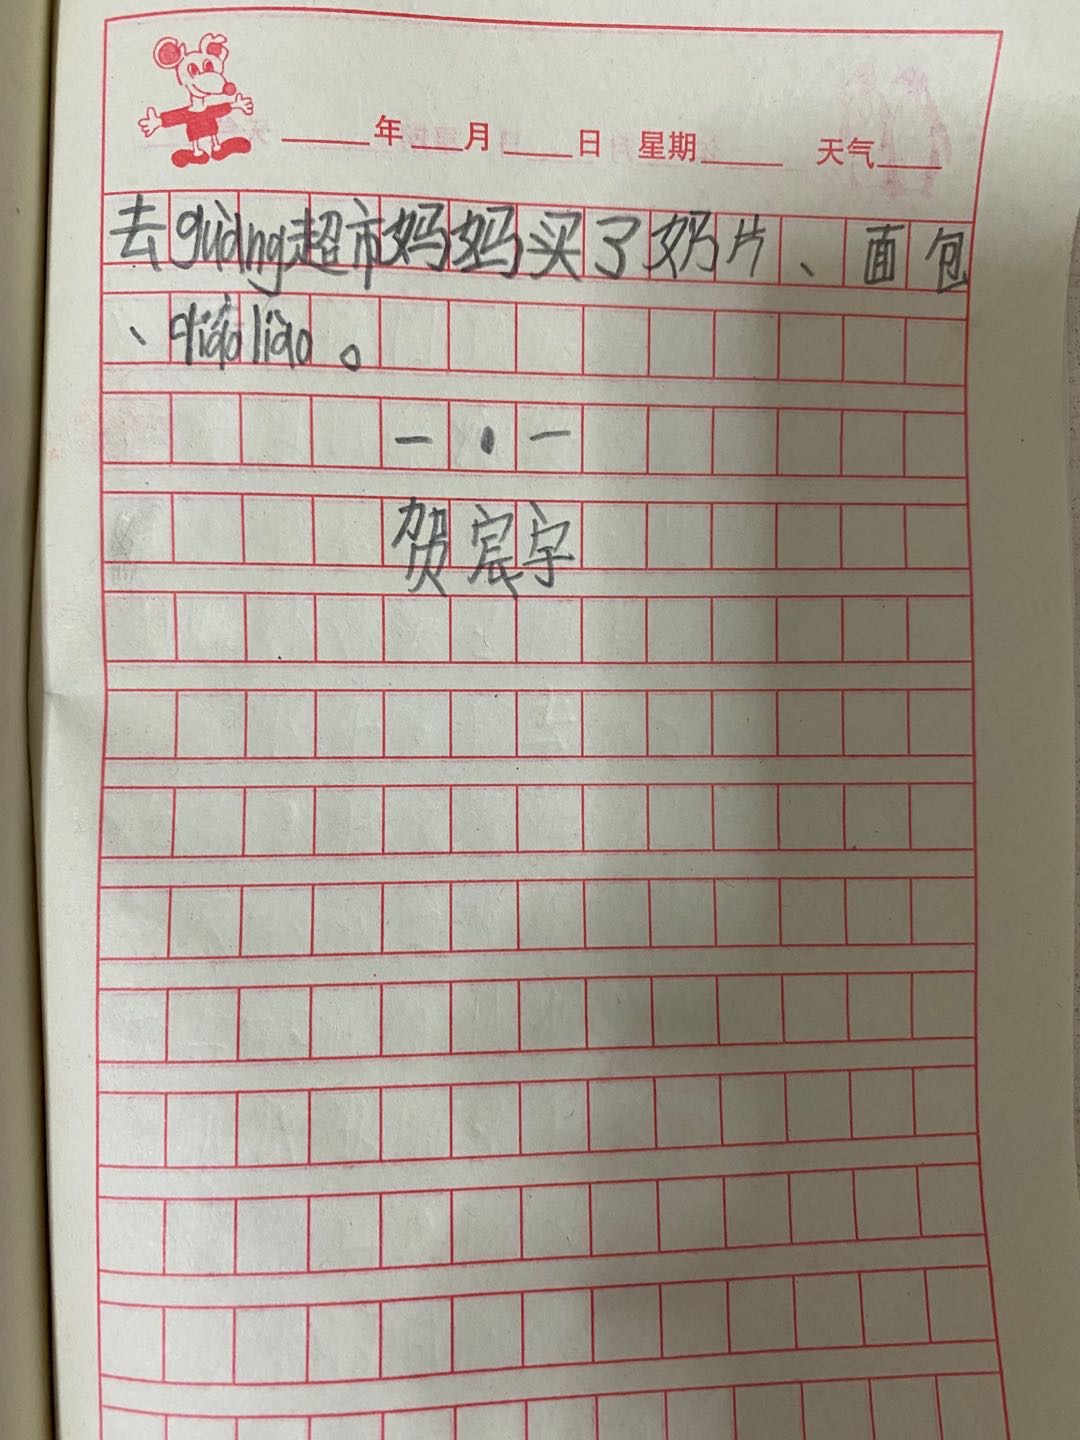 ____年___月____日 星期_____ 天气____
去guàng超市妈妈买了奶片、面包
、qiǎo liào。
一·一
贺宸宇